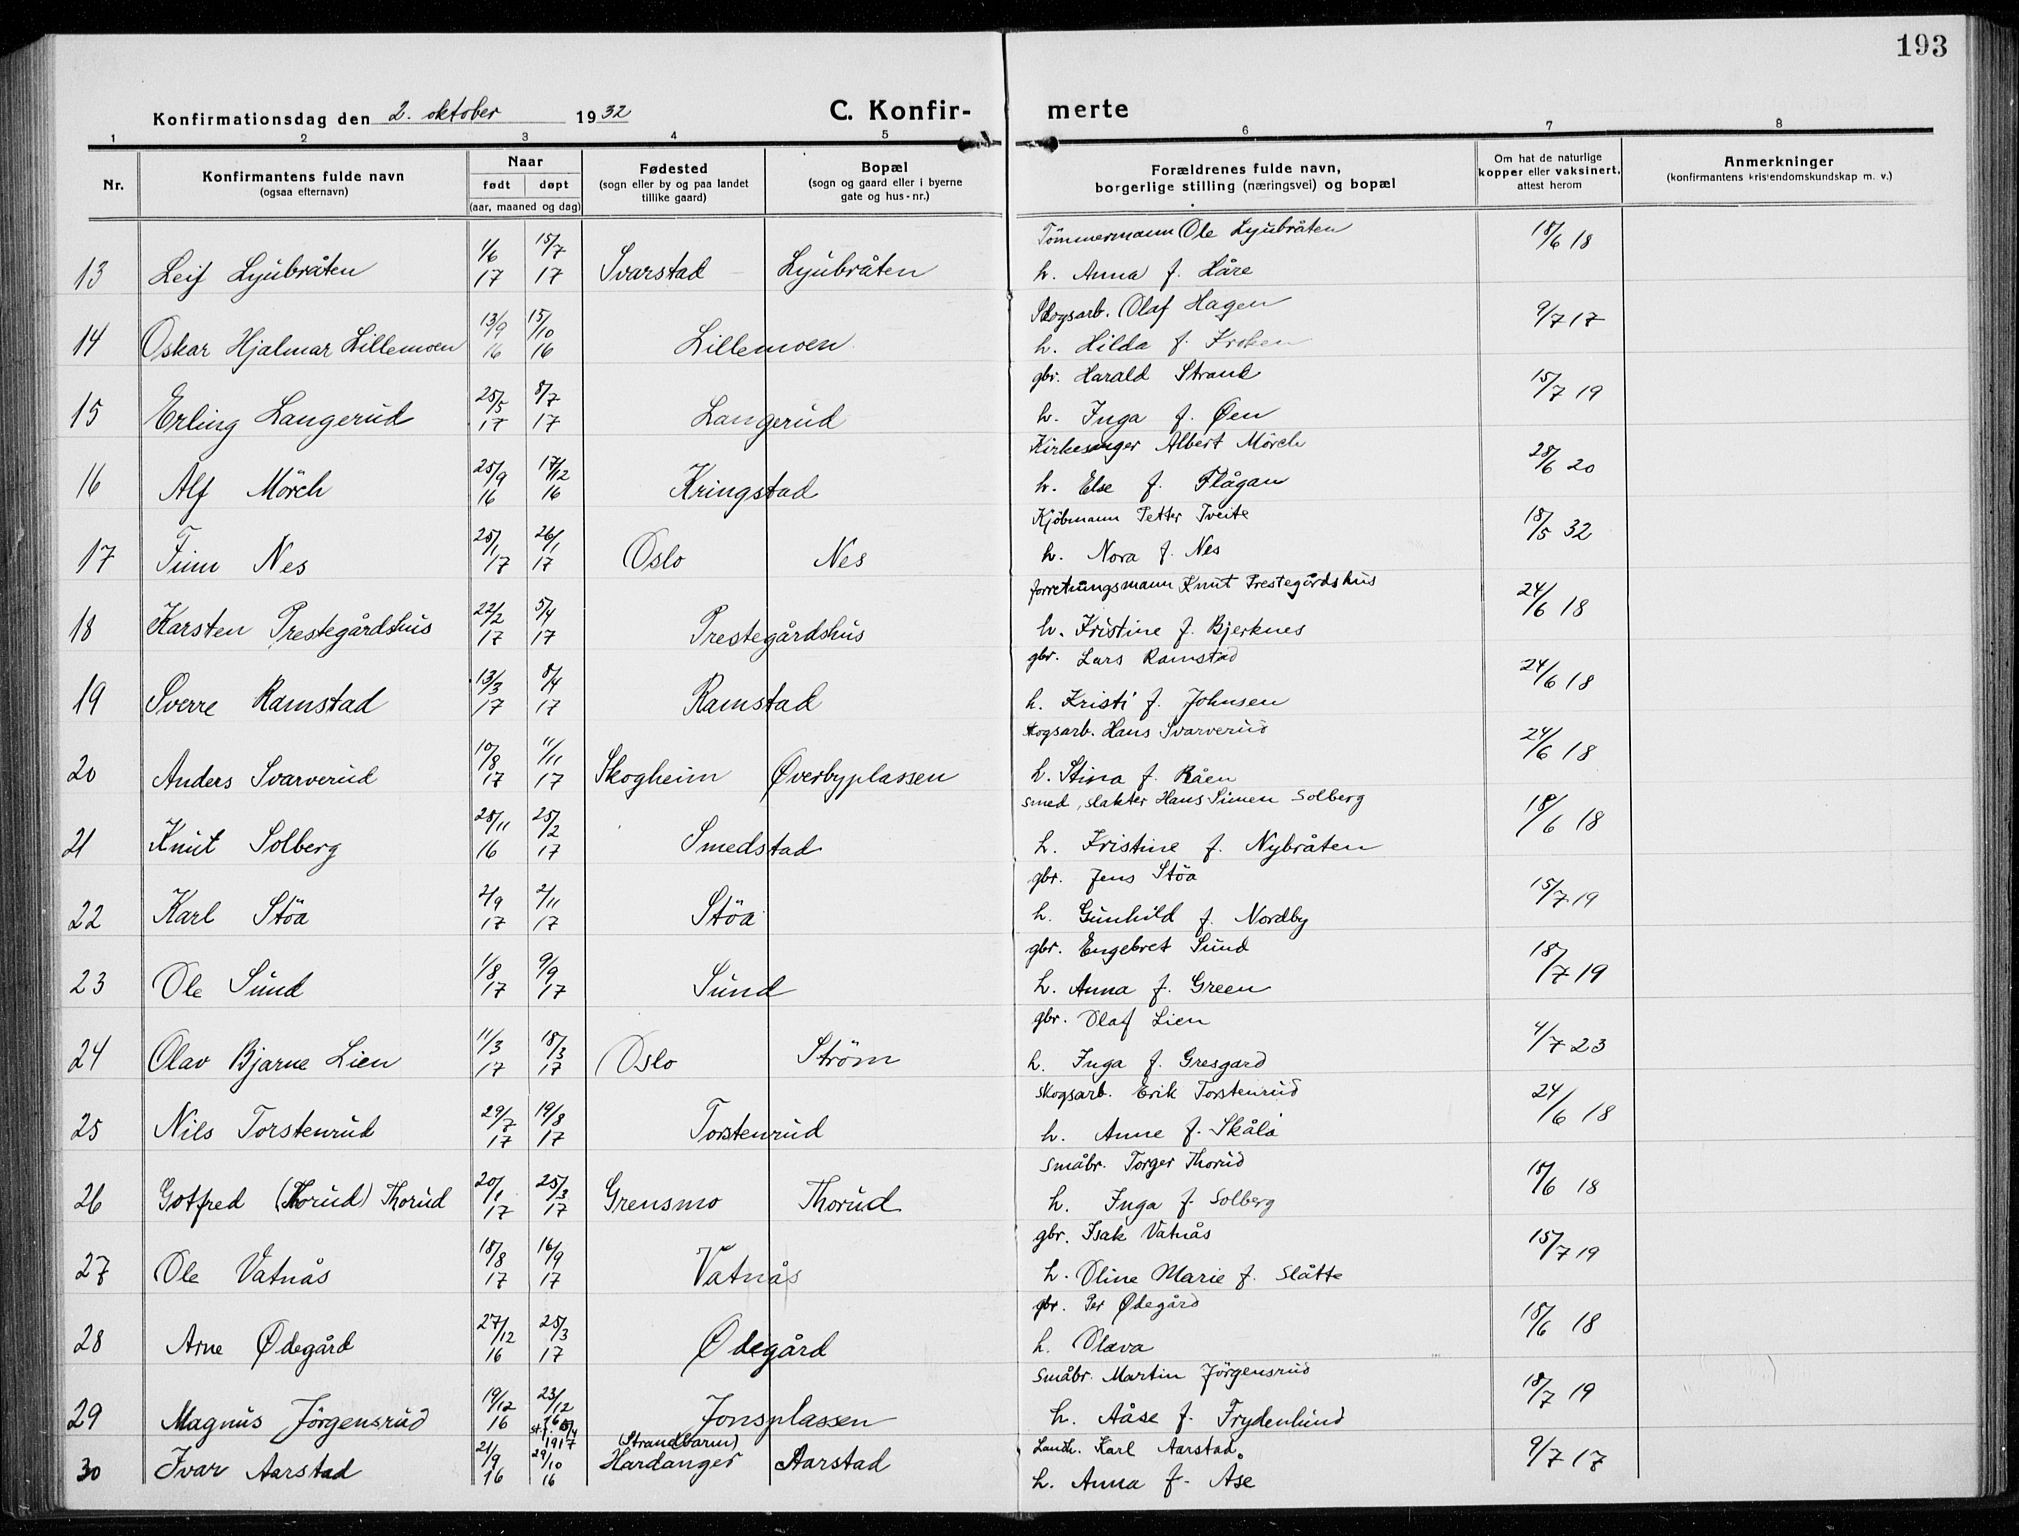 193
Konfirmationsdag den 2. oktober 1932
C. Konfirmerte
1 2 3 4 5 6 7 8
Nr.
Konfirmantens fulde navn
(ogsaa efternavn)
Naar
født døpt
(aar, maaned og dag)
Fødested
(sogn eller by og paa landet
tillike gaard)
Bopæl
(sogn og gaard eller i byerne
gate og hus-nr.)
Forældrenes fulde navn,
borgerlige stilling (næringsvei) og bopæl
Om hat de naturlige
kopper eller vaksinert,
attest herom
Anmerkninger
(konfirmantens kristendomskundskap m. v.)
1/6 15/7 Tömmermann Ole Lyubråten 18/6 18
13 Leif Lyubråten 17 17 Svarstad Lyubråten h. Anna f. Håre
13/9 15/10 Skogsarb. Olaf Hagen 9/7 17
14 Oskar Hjalmar Lillemoen 16 16 Lillemoen h. Hilda f. Kroken
25/5 8/7 gbr. Harald Strand 15/7 19
15 Erling Langerud 17 17 Langerud h. Inga f. Øen
25/9 17/12 Kirkesanger Albert Mörch 28/6 20
16 Alf Mörch 16 16 Kringstad h. Else f. Flågan
25/1 26/1 Kjöbmann Petter Tveite 18/5 32
17 Finn Nes 17 17 Oslo Nes h. Nora f. Nes
22/2 5/4 forretningsmann Knut Prestegårdshus 24/6 18
18 Karsten Prestegårdshus 17 17 Prestegårdshus h. Kristine f. Bjerknes
13/3 8/4 gbr. Lars Ramstad 24/6 18
19 Sverre Ramstad 17 17 Ramstad h. Kristi f. Johnsen
10/8 11/11 skogsarb. Hans Svarverud 24/6 18
20 Anders Svarverud 17 17 Skogheim Øverbyplassen h. Stina f. Råen
28/11 25/2 smed, slakter Hans Simen Solberg 18/6 18
21 Knut Solberg 16 17 Smedstad h. Kristine f. Nybråten
2/9 2/11 gbr. Jens Stöa 15/7 19
22 Karl Stöa 17 17 Stöa h. Gunhild f. Nordby
1/8 9/9 gbr. Engebret Sund 18/7 19
23 Ole Sund 17 17 Sund h. Anna f. Green
11/3 18/3 gbr. Olaf Lien 4/7 23
24 Olav Bjarne Lien 17 17 Oslo Ström h. Inga f. Gresgard
29/7 19/8 skogsarb. Erik Torstenrud 24/6 18
25 Nils Torstenrud 17 17 Torstenrud h. Anne f. Skåla
20/1 25/3 småbr. Torger Thorud 18/6 18
26 Gotfred (Thorud) Thorud 17 17 Grensmo Thorud h. Inga f. Solberg
18/8 16/9 gbr. Isak Vatnås 15/7 19
27 Ole Vatnås 17 17 Vatnås h. Oline Marie f. Slåtte
27/12 25/3 gbr. Per Ødegård 18/6 18
28 Arne Ødegård 16 17 Ødegård h. Olava
19/12 23/12 småbr. Martin Jörgensrud 18/7 19
29 Magnus Jörgensrud 16 16 Jonsplassen h. Aåse f. Frydenlund
1917 (Strandbarm)
21/9 29/10 Landh. Karl Aarstad 9/7 17
30 Ivar Aarstad 16 16 Hardanger Aarstad h. Anna f. Åse